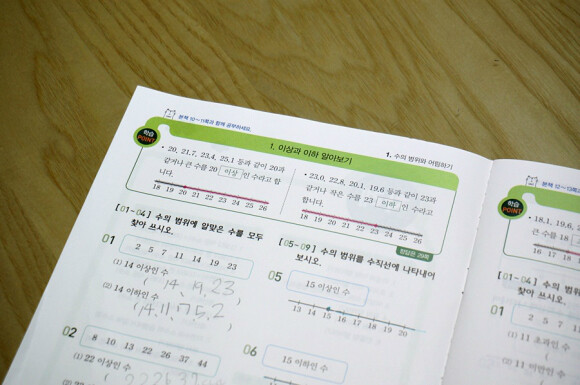 본책 10~11쪽과 함께 공부하세요.
학습
POINT
1. 이상과 이하 알아보기
1. 수의 범위와 어림하기
• 20, 21.7, 23.4, 25.1 등과 같이 20과
같거나 큰 수를 20 이상 인 수라고 합
니다.
18 19 20 21 22 23 24 25 26
• 23.0, 22.8, 20.1, 19.6 등과 같이 23과
같거나 작은 수를 23 이하 인 수라고
합니다.
18 19 20 21 22 23 24 25 26
정답은 29쪽
[01~04] 수의 범위에 알맞은 수를 모두
찾아 쓰시오.
01
2 5 7 11 14 19 23
(1) 14 이상인 수
( 14, 19, 23 )
(2) 14 이하인 수
(14, 11, 7, 5, 2 )
02
8 10 13 22 26 37 44
(1) 22 이상인 수
[05~09] 수의 범위를 수직선에 나타내어
보시오.
05
15 이상인 수
13 14 15 16 17 18 19 20
06
15 이하인 수
본책 12~13쪽과
학습
POINT
• 18.1, 19.6,
큰 수를 18
18 19
[01~04]
찾아 쓰시오.
01
2 5 7
(1) 11 초과인 수
(2) 11 미만인 수